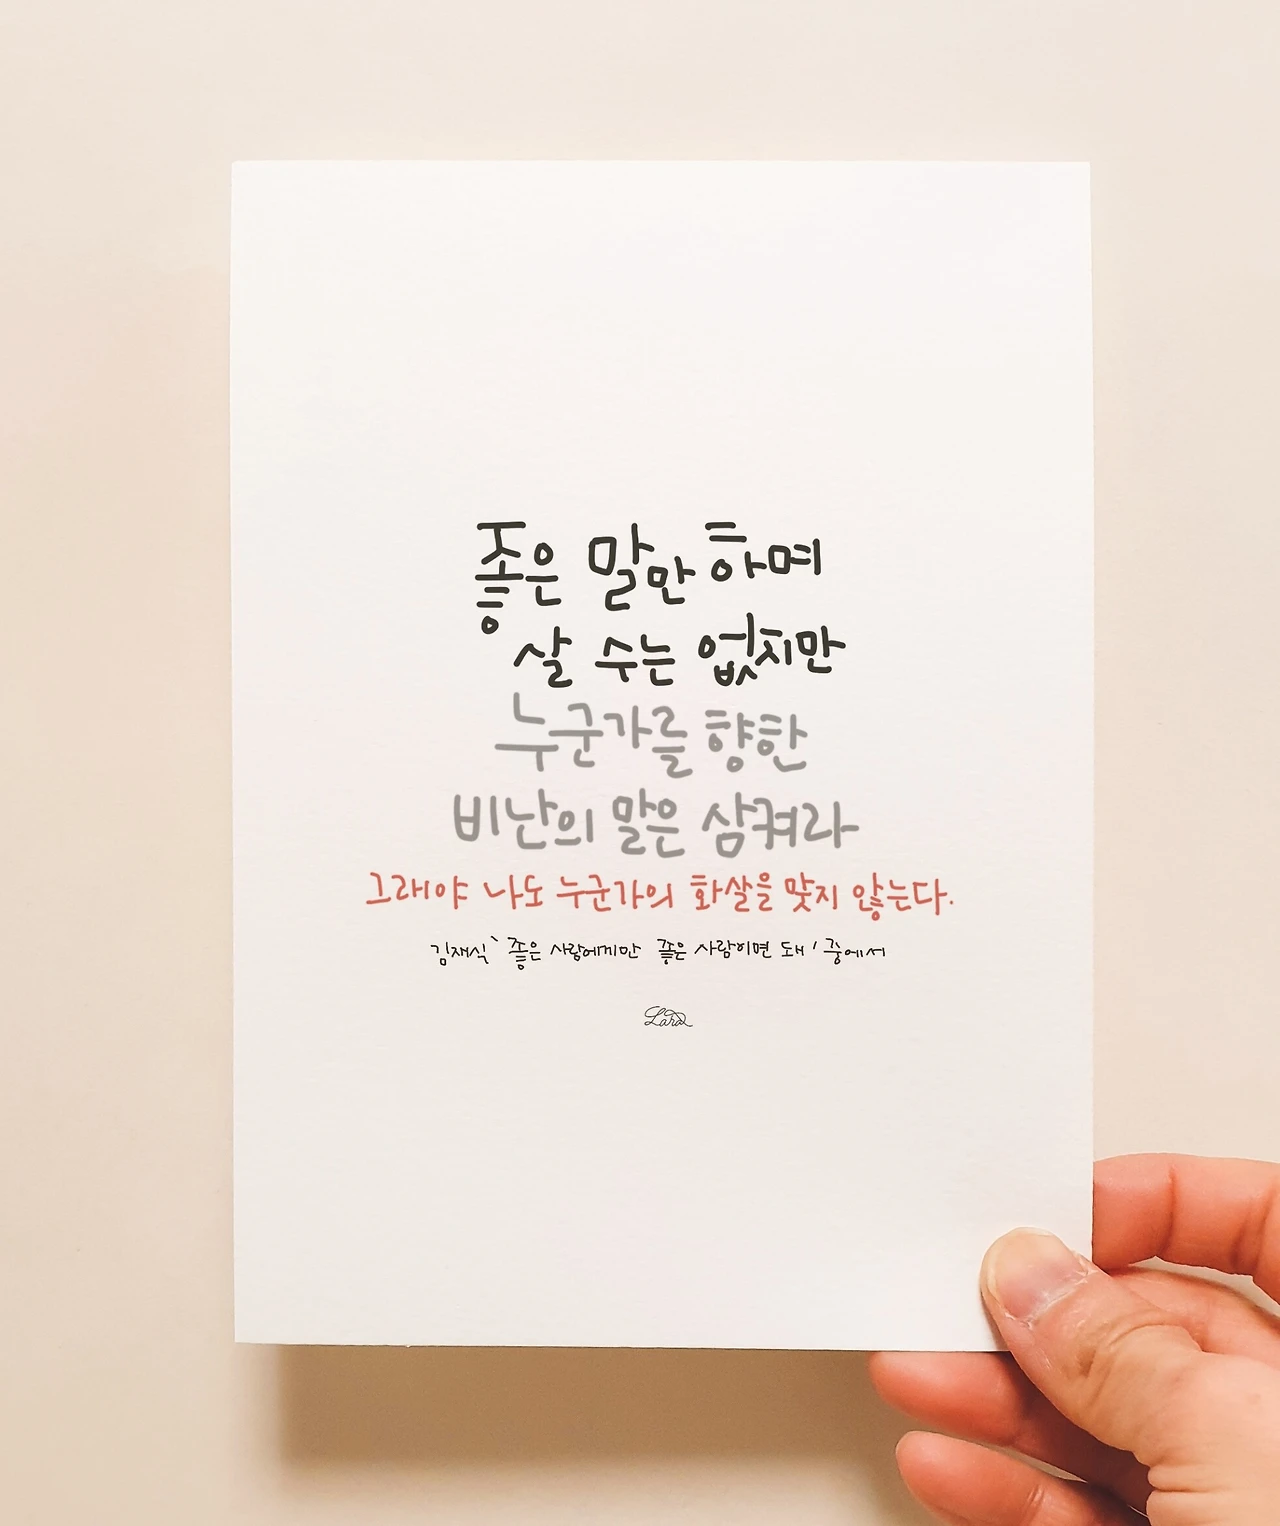 좋은 말만 하며
살 수는 없지만
누군가를 향한
비난의 말은 삼켜라
그래야 나도 누군가의 화살을 맞지 않는다.
김재식 '좋은 사람에게만 좋은 사람이면 돼' 중에서
Lara